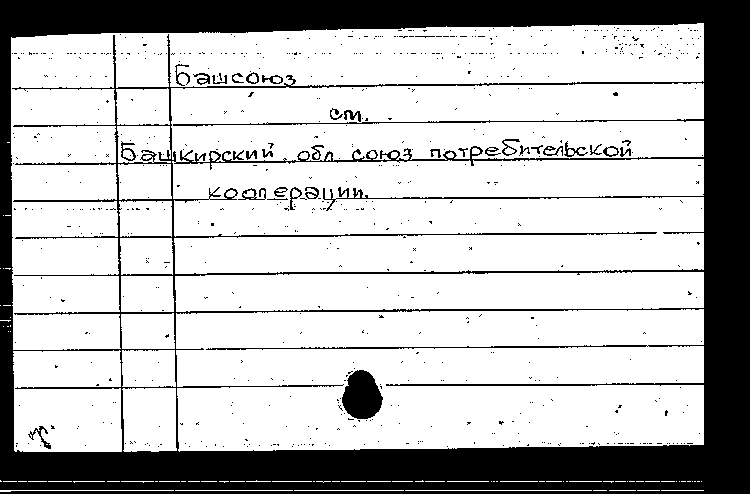 Башсоюз
см.
Башкирский обл. союз потребительской
кооперации.